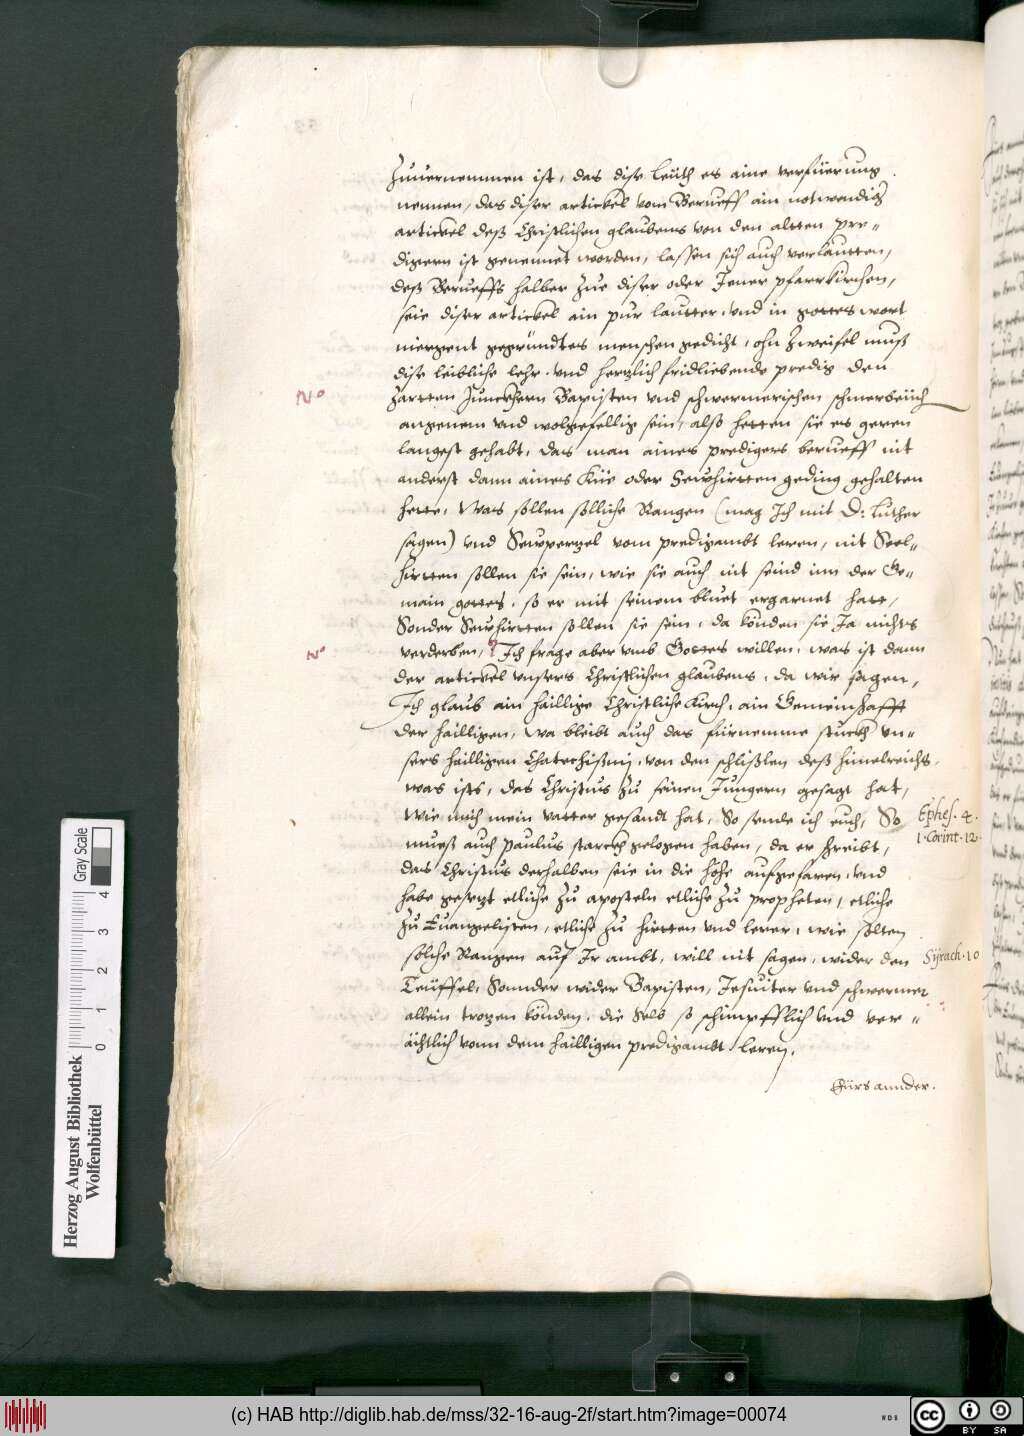 Zuuernemmen ist, das dise leüth es aine verfüerung
nennen, das diser artickel vom Berueff ain notwendig
artickel deß Christlichen glaubens von den altten pre„
digern ist genennet worden, lassen sich auch verlautten,
deß Berueffs halber Zue diser oder Jener pfarrkirchen,
seie diser artickel ain pur lautter, vnd in gottes wort
niergent gegründtes menschen gedicht, ohn Zweifel muß
dise leibliche lehr, vnd hertzlich fridliebende predig den
N⁰
Zartten Junckhern Bapisten vnd schwermerischen schmerbeüch
angenem vnd wolgefellig sein, alß hetten sie es geren
langest gehabt, das man aines predigers berueff nit
anderst dann aines Küe oder Sewhirtten geding gehalten
hette, Was sollen solliche Rangen (mag Ich mit D: Luther
sagen) vnd Sewpertzel vom predigambt leren, nit Seel„
hirtten sollen sie sein, wie sie auch nit seind inn der Ge„
main gottes, so er mit seinem bluet erarnet hatt,
Sonder Sewhirtten sollen sie sein, da könden sie Ja nichts
N⁰
verderben, Ich frage aber vmb Gottes willen, was ist dann
der artickel vnsers Christlichen glaubens, da wir sagen,
Ich glaub ain haillige Christliche Kirch, ain Gemeinschafft
der hailligen, Wa bleibt auch das fürnemme stuckh vn„
sers hailligen Chatechißmj, von den schlißlen deß himelreichs,
was ists, das Christus Zu seinen Jungern gesagt hat,
Wie mich mein vatter gesandt hat, So sende ich euch, So
Ephes. 4.
1. Corint. 12.
mueß auch paulus starckh gelogen haben, da er schreibt,
das Christus derhalben seie in die höhe aufgefaren, vnd
habe gesetzt etliche Zu aposteln etliche Zu propheten, etliche
Zu Euangelisten, etliche Zu hirtten vnd lerer, wie solten
solche Rangen auf Jr ambt, will nit sagen, wider den
Syrach. 10
Teüffel, Sonnder wider Bapisten, Jesuiter vnd schwermer
allein trotzen könden, die selb so schimpfflich vnd ver„
ächtlich vonn dem hailligen predigambt leren.
Fürs annder.
Herzog August Bibliothek
Wolfenbüttel
Gray Scale
0 1 2 3 4
(c) HAB http://diglib.hab.de/mss/32-16-aug-2f/start.htm?image=00074
WDB
cc
BY SA